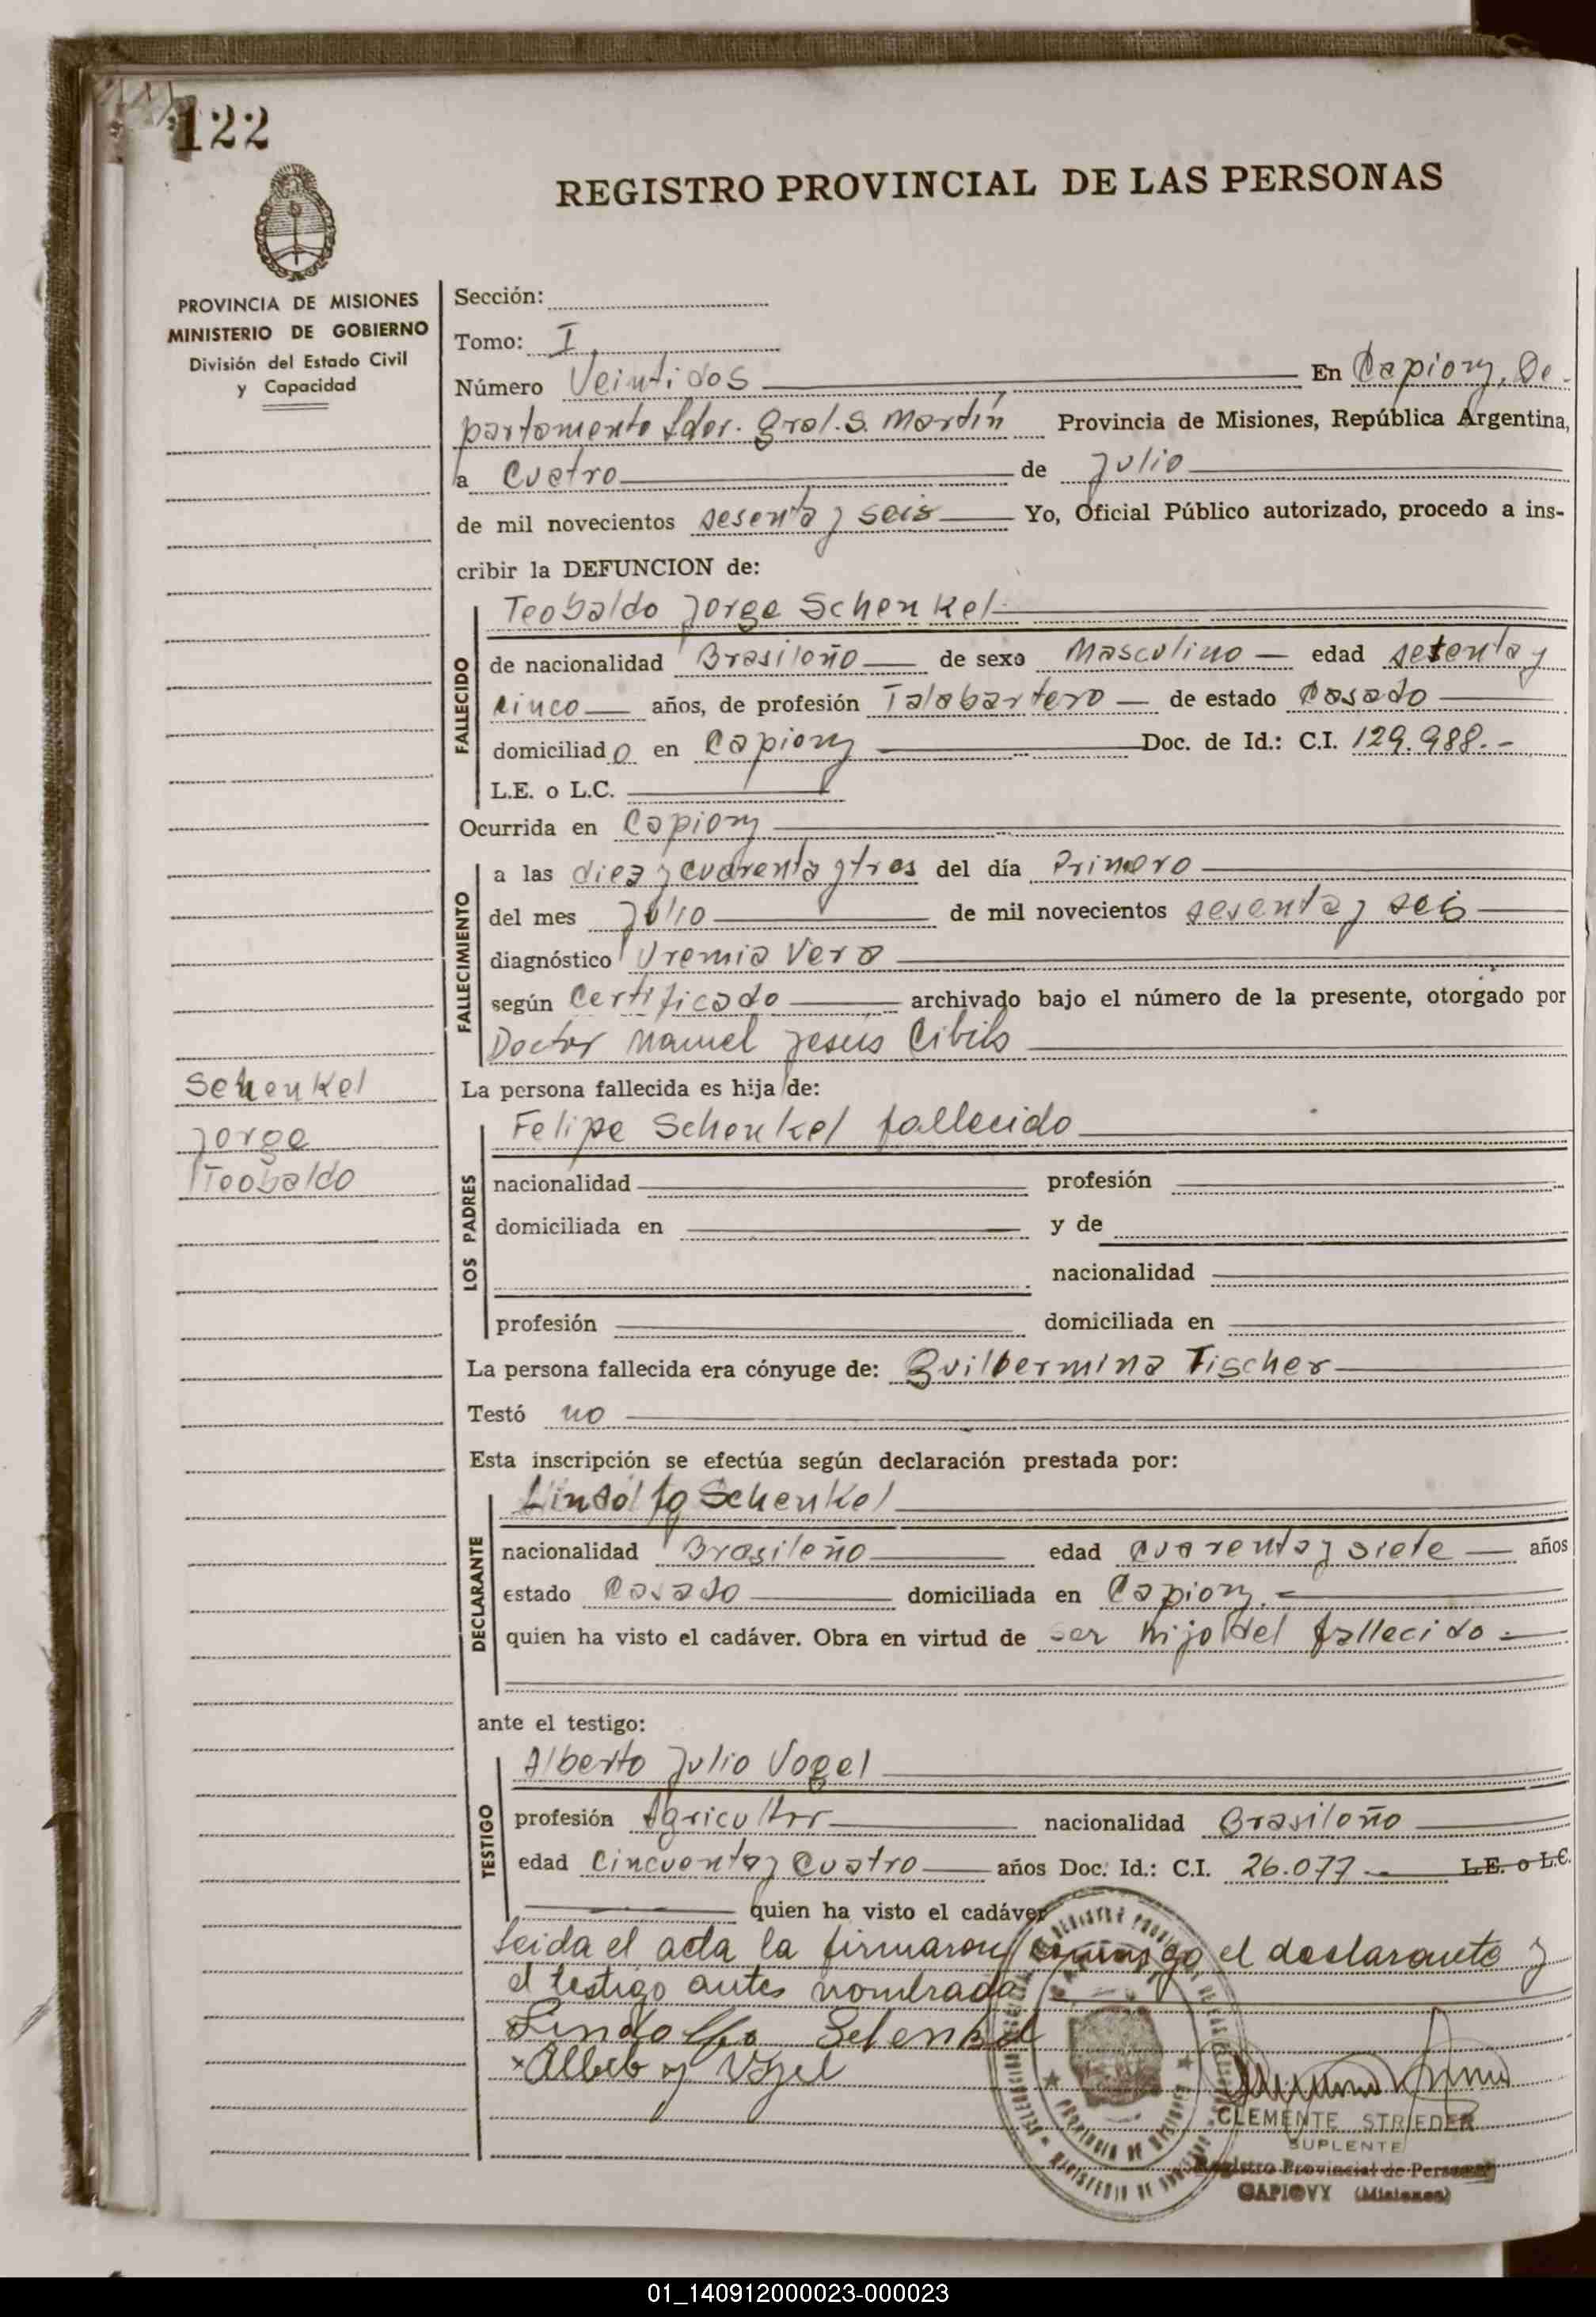 122
REGISTRO PROVINCIAL DE LAS PERSONAS
PROVINCIA DE MISIONES
MINISTERIO DE GOBIERNO
División del Estado Civil
y Capacidad
Sección:
Tomo: I
Número Veintidos En Capiovy, De-
partamento Lder. Gral. S. Martín Provincia de Misiones, República Argentina,
a Cuatro de Julio
de mil novecientos sesenta y seis Yo, Oficial Público autorizado, procedo a ins-
cribir la DEFUNCION de:
FALLECIDO
Teobaldo Jorge Schenkel
de nacionalidad Brasileño de sexo Masculino edad setenta y
cinco años, de profesión Talabartero de estado Casado
domiciliado en Capiovy Doc. de Id.: C.I. 129.988.-
L.E. o L.C.
Ocurrida en Capiovy
FALLECIMIENTO
a las diez y cuarenta y tres del día Primero
del mes Julio de mil novecientos sesenta y seis
diagnóstico Uremia Vera
según Certificado archivado bajo el número de la presente, otorgado por
Doctor Manuel Jesús Cibils
Schenkel
Jorge
Teobaldo
La persona fallecida es hija de:
LOS PADRES
Felipe Schenkel fallecido
nacionalidad profesión
domiciliada en y de
nacionalidad
profesión domiciliada en
La persona fallecida era cónyuge de: Guilhermina Fischer
Testó no
Esta inscripción se efectúa según declaración prestada por:
DECLARANTE
Lindolfo Schenkel
nacionalidad Brasileño edad cuarenta y siete años
estado Casado domiciliada en Capiovy.
quien ha visto el cadáver. Obra en virtud de ser hijo del fallecido
ante el testigo:
TESTIGO
Alberto Julio Vogel
profesión Agricultor nacionalidad Brasileño
edad Cincuenta y Cuatro años Doc. Id.: C.I. 26.077 L.E. o L.C.
quien ha visto el cadáver
Leida el acta la firmaron conmigo el declarante y
el testigo antes nombrado
Lindolfo Schenkel
Alberto J Vogel
CLEMENTE STRIEDER
SUPLENTE
Registro Provincial de Personas
CAPIOVY (Misiones)
01_140912000023-000023